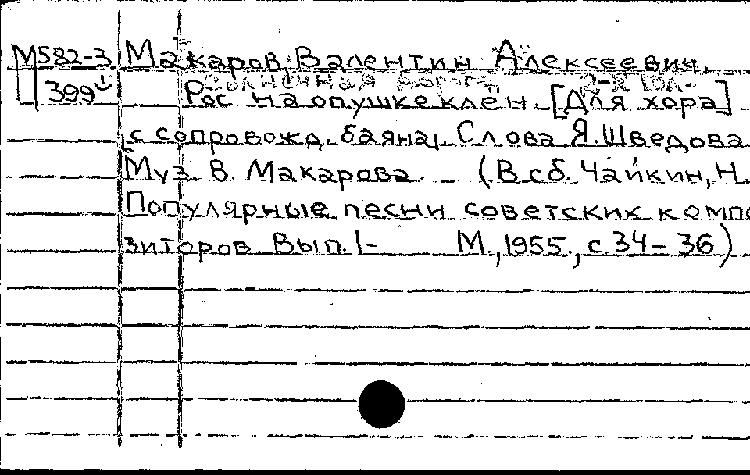 М582-3 Макаров, Валентин Алексеевич.
399
Рос на опушке клен. [Для хора]
с сопровожд. баяна. Слова Я. Шведова
Муз. В. Макарова. – (В сб. Чайкин, Н.
Популярные песни советских компо
зиторов Вып. 1- М., 1955., с 34-36)